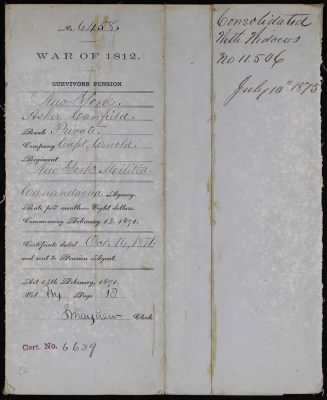 No. 6458
WAR OF 1812.
SURVIVORS PENSION
New York.
Asher Canfield
Rank Private
Company Capt. Arnold
Regiment
New York Militia
Canandagua Agency.
Rate per month—Eight dollars.
Commencing February 14, 1871.
Certificate dated Oct. 16, 1871
and sent to Pension Agent.
Act 14th February, 1871.
Vol. Page 18
S Mayhew Clerk
Cert. No. 6639
Consolidated
With Widows
No 11506
July 10" 1875